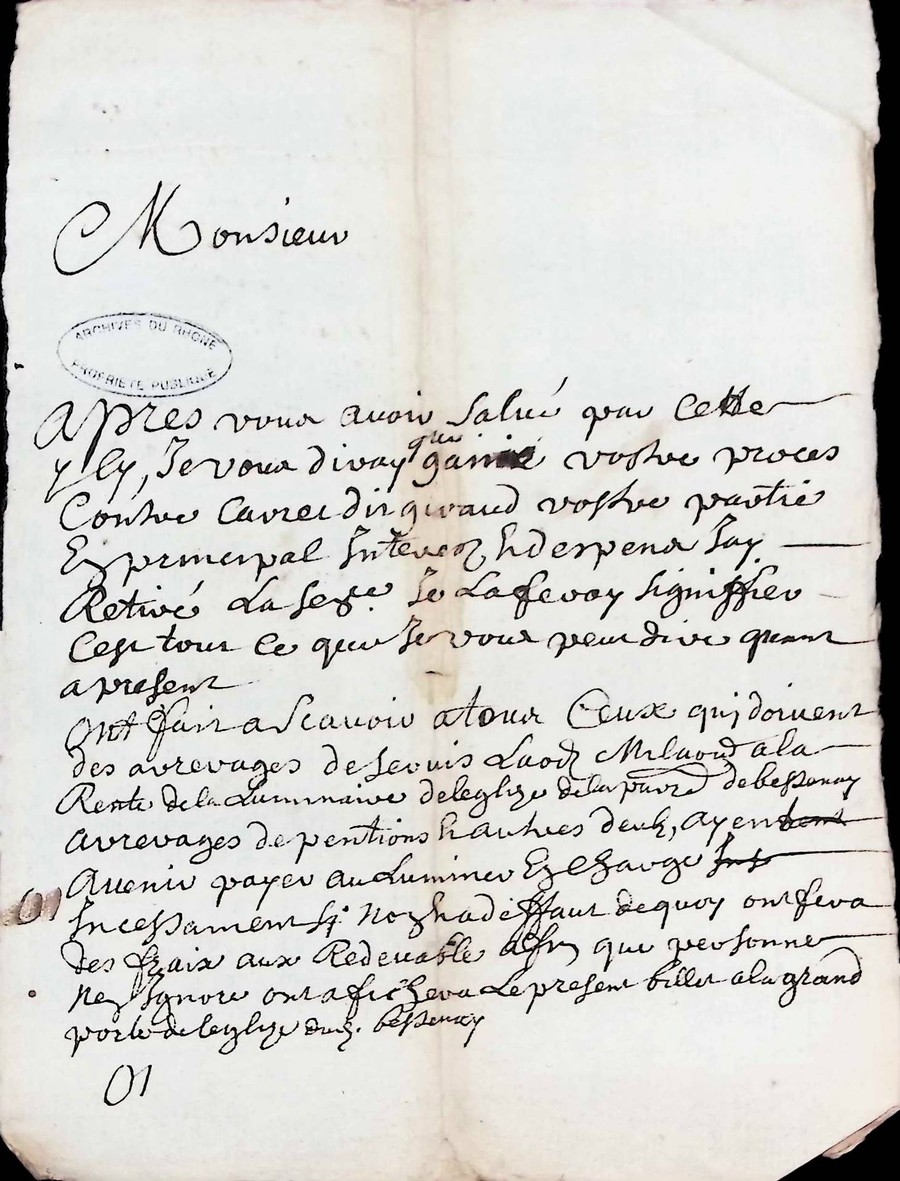 Monsieur
ARCHIVES DU RHONE
PROPRIETE PUBLIQUE
apres vous avoir salué par cette
yly, Je vous diray que gainié vostre proces
Contre dit giraud vostre partie
En principal Interez & despens Jay
Retiré La Je La feray signiffier
Cest tout ce que Je vous peux dire quant
a present
Ont fait a scavoir a tous Ceux quj doivent
des arrerages de servis Laodz Milaodz a la
Rente de la Luminaire deleglize de la parre de bessenay
arrerages de pentions & autres deubz, ayent
Avenir payer au Luminier En Charge
Incessament & a deffaut de quoy ont fera
des fraix aux Redevable afin que personne
Nen Ignore ont afichera Le present billet a la grand
porte de leglize dudt. bessenay
01